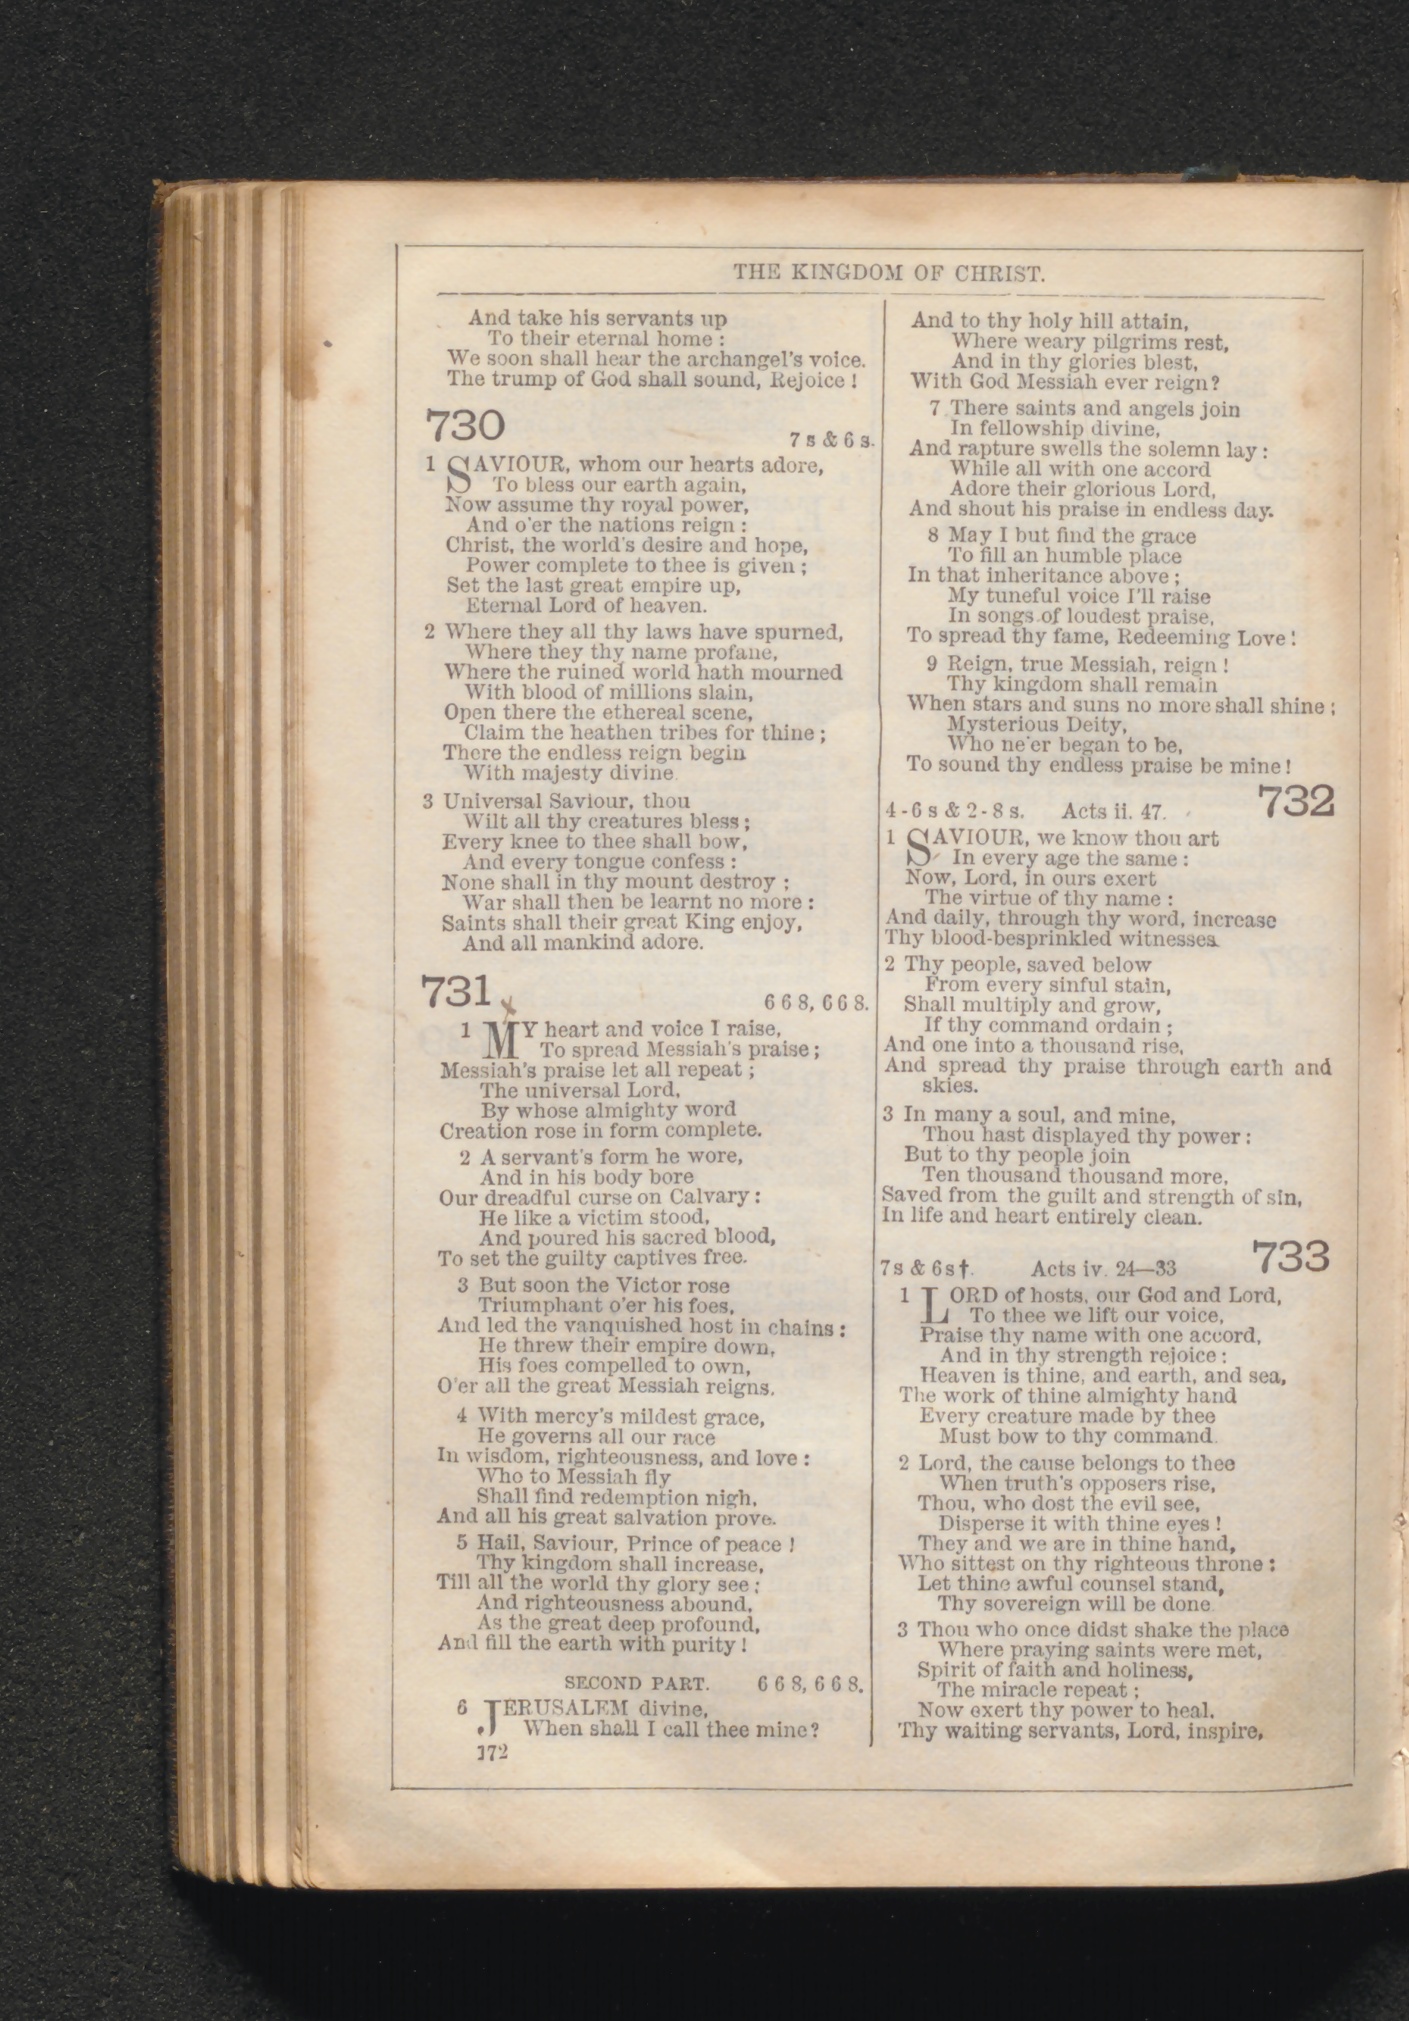 THE KINGDOM OF CHRIST.
And take his servants up
To their eternal home :
We soon shall hear the archangel's voice.
The trump of God shall sound, Rejoice !
730
7 s & 6 s.
1 SAVIOUR, whom our hearts adore,
To bless our earth again,
Now assume thy royal power,
And o'er the nations reign :
Christ, the world's desire and hope,
Power complete to thee is given ;
Set the last great empire up,
Eternal Lord of heaven.
2 Where they all thy laws have spurned,
Where they thy name profane,
Where the ruined world hath mourned
With blood of millions slain,
Open there the ethereal scene,
Claim the heathen tribes for thine ;
There the endless reign begin
With majesty divine
3 Universal Saviour, thou
Wilt all thy creatures bless ;
Every knee to thee shall bow,
And every tongue confess :
None shall in thy mount destroy ;
War shall then be learnt no more :
Saints shall their great King enjoy,
And all mankind adore.
731
6 6 8, 6 6 8.
1 MY heart and voice I raise,
To spread Messiah's praise ;
Messiah's praise let all repeat ;
The universal Lord,
By whose almighty word
Creation rose in form complete.
2 A servant's form he wore,
And in his body bore
Our dreadful curse on Calvary :
He like a victim stood,
And poured his sacred blood,
To set the guilty captives free.
3 But soon the Victor rose
Triumphant o'er his foes,
And led the vanquished host in chains :
He threw their empire down,
His foes compelled to own,
O'er all the great Messiah reigns.
4 With mercy's mildest grace,
He governs all our race
In wisdom, righteousness, and love :
Who to Messiah fly
Shall find redemption nigh,
And all his great salvation prove.
5 Hail, Saviour, Prince of peace !
Thy kingdom shall increase,
Till all the world thy glory see ;
And righteousness abound,
As the great deep profound,
And fill the earth with purity !
SECOND PART. 6 6 8, 6 6 8.
6 JERUSALEM divine,
When shall I call thee mine?
172
And to thy holy hill attain,
Where weary pilgrims rest,
And in thy glories blest,
With God Messiah ever reign?
7 There saints and angels join
In fellowship divine,
And rapture swells the solemn lay :
While all with one accord
Adore their glorious Lord,
And shout his praise in endless day.
8 May I but find the grace
To fill an humble place
In that inheritance above ;
My tuneful voice I'll raise
In songs of loudest praise,
To spread thy fame, Redeeming Love !
9 Reign, true Messiah, reign !
Thy kingdom shall remain
When stars and suns no more shall shine ;
Mysterious Deity,
Who ne'er began to be,
To sound thy endless praise be mine !
732
4 - 6 s & 2 - 8 s. Acts ii. 47.
1 SAVIOUR, we know thou art
In every age the same :
Now, Lord, in ours exert
The virtue of thy name :
And daily, through thy word, increase
Thy blood-besprinkled witnesses.
2 Thy people, saved below
From every sinful stain,
Shall multiply and grow,
If thy command ordain ;
And one into a thousand rise,
And spread thy praise through earth and
skies.
3 In many a soul, and mine,
Thou hast displayed thy power :
But to thy people join
Ten thousand thousand more,
Saved from the guilt and strength of sin,
In life and heart entirely clean.
733
7 s & 6 s †. Acts iv. 24—33
1 LORD of hosts, our God and Lord,
To thee we lift our voice,
Praise thy name with one accord,
And in thy strength rejoice :
Heaven is thine, and earth, and sea,
The work of thine almighty hand
Every creature made by thee
Must bow to thy command.
2 Lord, the cause belongs to thee
When truth's opposers rise,
Thou, who dost the evil see,
Disperse it with thine eyes !
They and we are in thine hand,
Who sittest on thy righteous throne :
Let thine awful counsel stand,
Thy sovereign will be done
3 Thou who once didst shake the place
Where praying saints were met,
Spirit of faith and holiness,
The miracle repeat ;
Now exert thy power to heal.
Thy waiting servants, Lord, inspire,